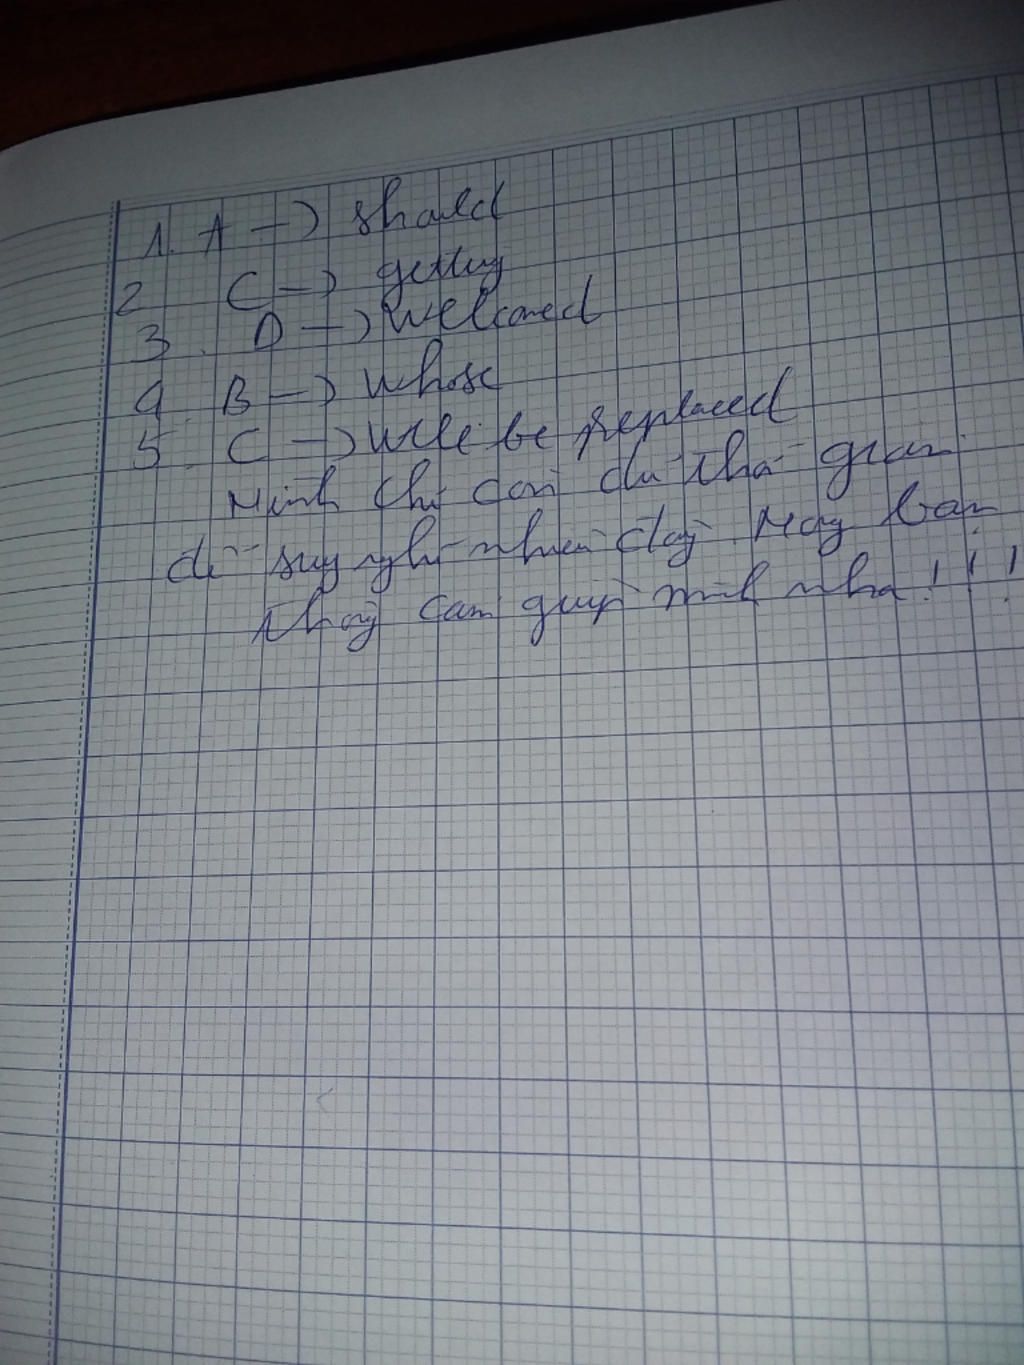 1. A -> should
2 C -> getting
3. D -> welcomed
4 B -> whose
5. C -> will be replaced
Mình chỉ còn đủ thời gian
để suy nghĩ nhiêu đây. Mong bạn
thông cảm giúp mình nha!!!